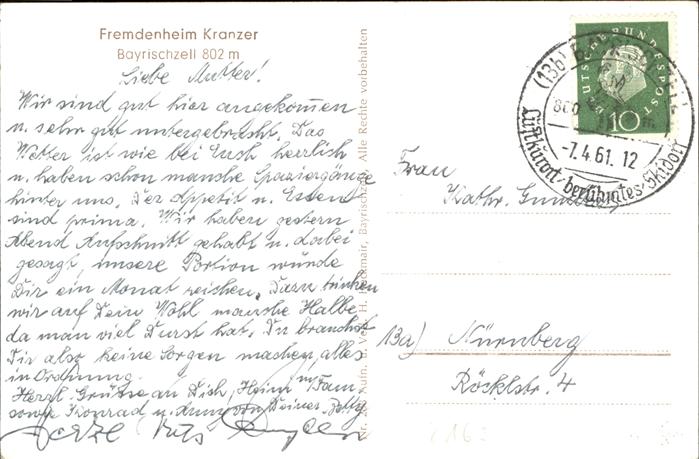 Fremdenheim Kranzer
Bayrischzell 802 m
Liebe Mutter!
Wir sind gut hier angekommen
u. sehr gut untergebracht. Das
Wetter ist wie bei Euch herrlich
u. haben schon manche Spaziergänge
hinter uns. Der Appetit u. Essen
sind prima. Wir haben gestern
Abend Aufschnitt gehabt u. dabei
gesagt, unsere Portion würde
Dir ein Monat reichen. Dazu trinken
wir auf Dein Wohl manche Halbe
da man viel Durst hat. Du brauchst
Dir also keine Sorgen machen, alles
in Ordnung.
Herzl. Grüße an Dich, Heini m. Fam.
sowie Konrad u. Anny von Deiner
Alle Rechte vorbehalten
DEUTSCHE BUNDESPOST
10
(13b) BAYRISCHZELL
800 m
-7.4.61. 12
Luftkurort - berühmtes Skidorf
Frau
Kathr.
13a) Nürnberg
Röcklstr. 4